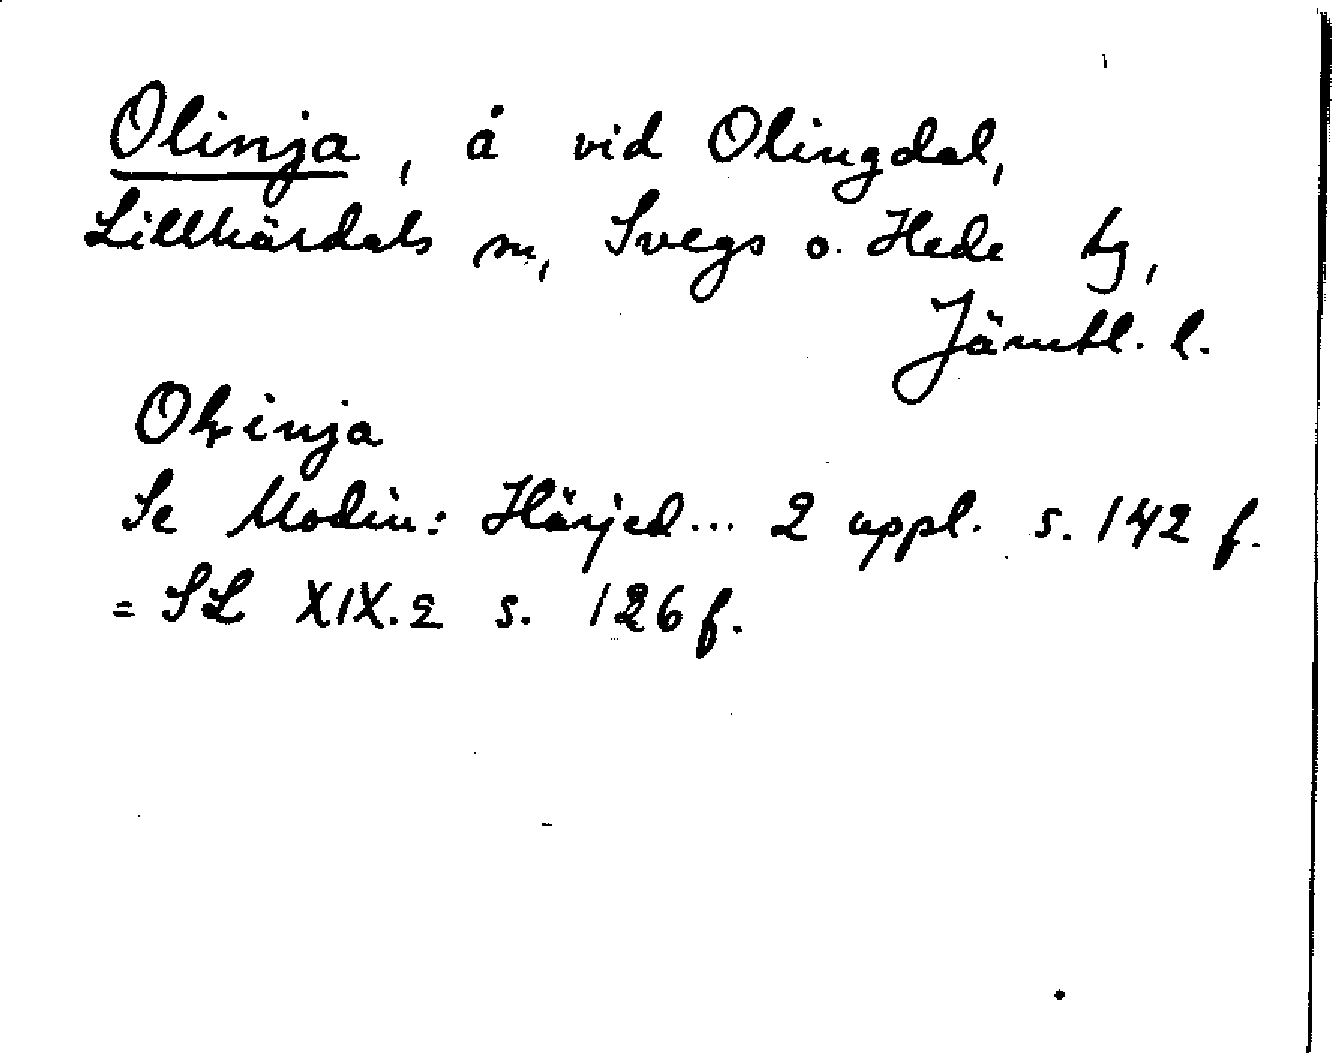 Olinja, å vid Olingdal,
Lillhärdals sn, Svegs o. Hede tg,
Jämtl. l.
Olinja
Se Modin: Härjed... 2 uppl. s. 142 f.
= SL XIX.2 s. 126 f.